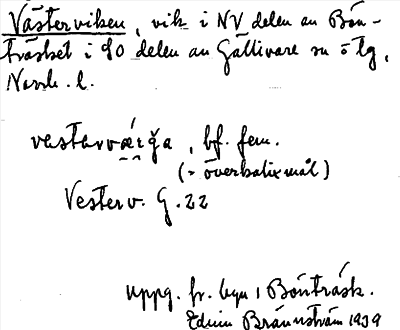 Västerviken, vik i NV delen av Bön-
träsket i SO delen av Gällivare sn o tg,
Norrb. l.
vestervǽrǧa, bf. fem.
(= överkalixmål)
Vesterv. G. 22
uppg. fr. byn i Bönträsk.
Edvin Brännström 1939